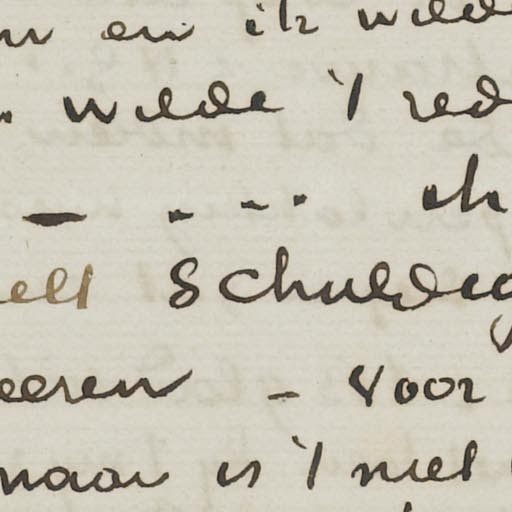 en ik wilde
wilde 't red
— . - . . ik
ell Schuldig
eeren – Voor
maar is 't niet